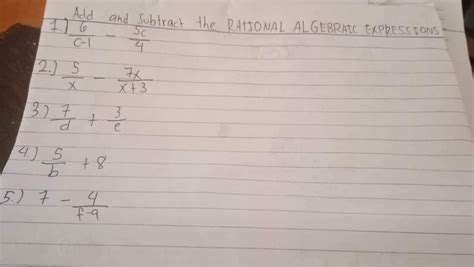 Add and Subtract the RATIONAL ALGEBRAIC EXPRESSIONS
1.) 6/c-1 - 5c/4
2.) 5/x - 7x/x+3
3.) 7/d + 3/e
4.) 5/b + 8
5.) 7 - 4/f-9